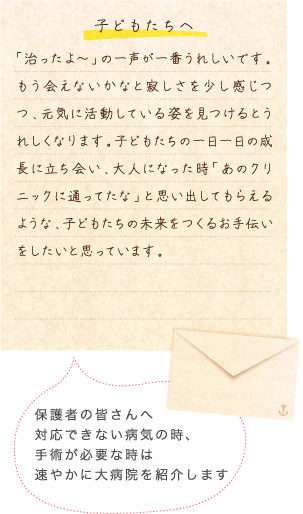 子どもたちへ
「治ったよ～」の一声が一番うれしいです。
もう会えないかなと寂しさを少し感じつ
つ、元気に活動している姿を見つけるとう
れしくなります。子どもたちの一日一日の成
長に立ち会い、大人になった時「あのクリ
ニックに通ってたな」と思い出してもらえる
ような、子どもたちの未来をつくるお手伝い
をしたいと思っています。
保護者の皆さんへ
対応できない病気の時、
手術が必要な時は
速やかに大病院を紹介します